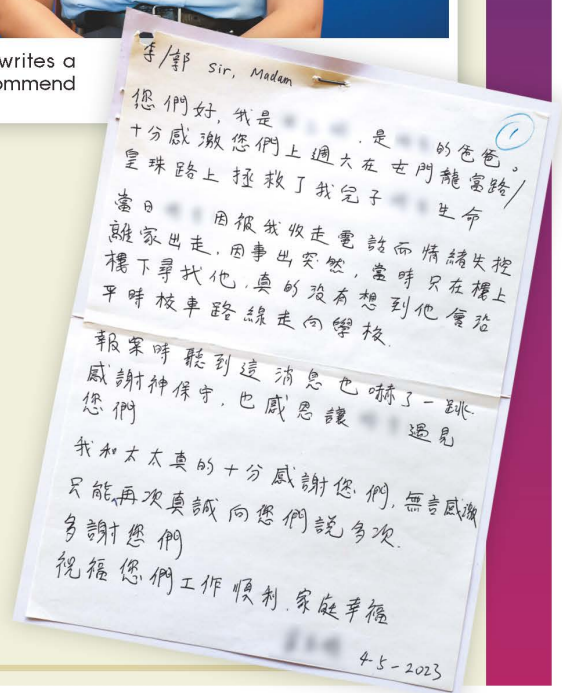 writes a
ommend
李/郭 Sir, Madam
①
您們好, 我是 . 是 的爸爸。
十分感激您們上週六在屯門龍富路/
皇珠路上拯救了我兒子 生命
當日 因被我收走電話而情緒失控
離家出走, 因事出突然, 當時只在樓上
樓下尋找他, 真的沒有想到他會沿
平時校車路線走向學校.
報案時聽到這消息也嚇了一跳.
感謝神保守, 也感恩讓 遇見
您們
我和太太真的十分感謝您們, 無言感激
只能再次真誠向您們說多次.
多謝您們
祝福您們工作順利. 家庭幸福
4-5-2023